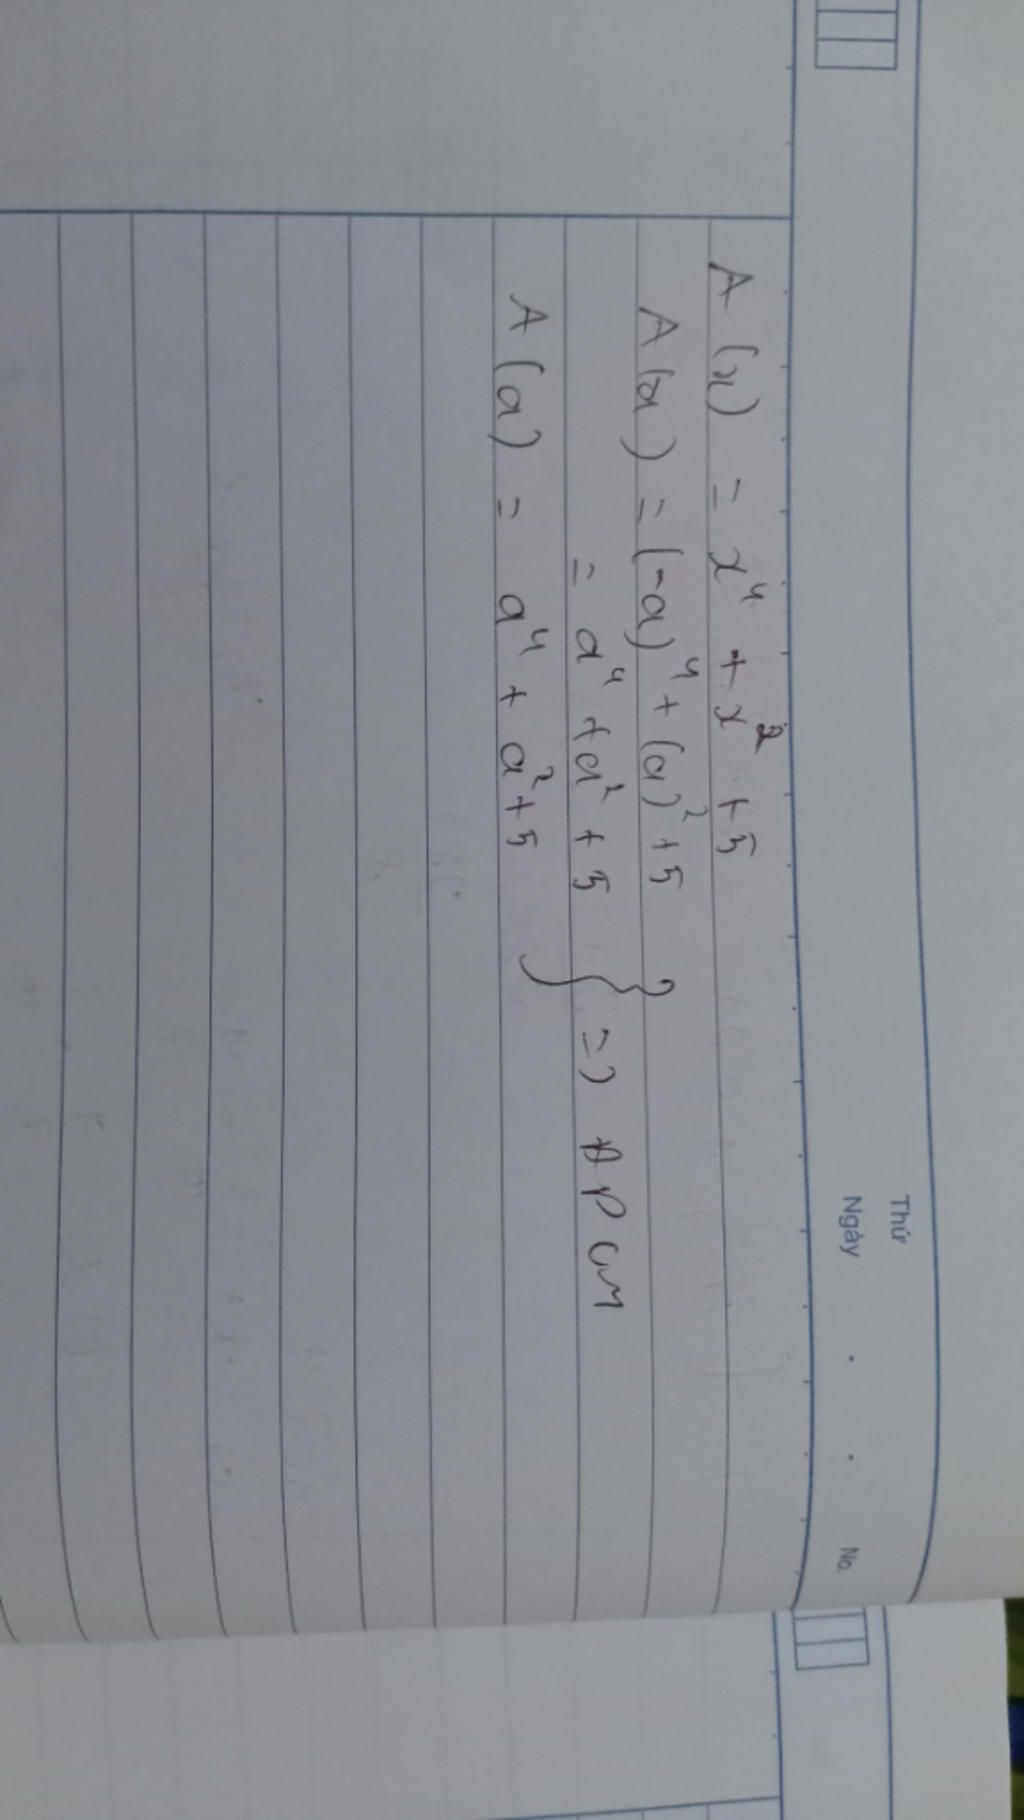 Thứ
Ngày . . No.
A (x) = x⁴ + x² + 5
A (a) = (-a)⁴ + (a)² + 5
= a⁴ + a² + 5
A (a) = a⁴ + a² + 5
} => ĐPCM